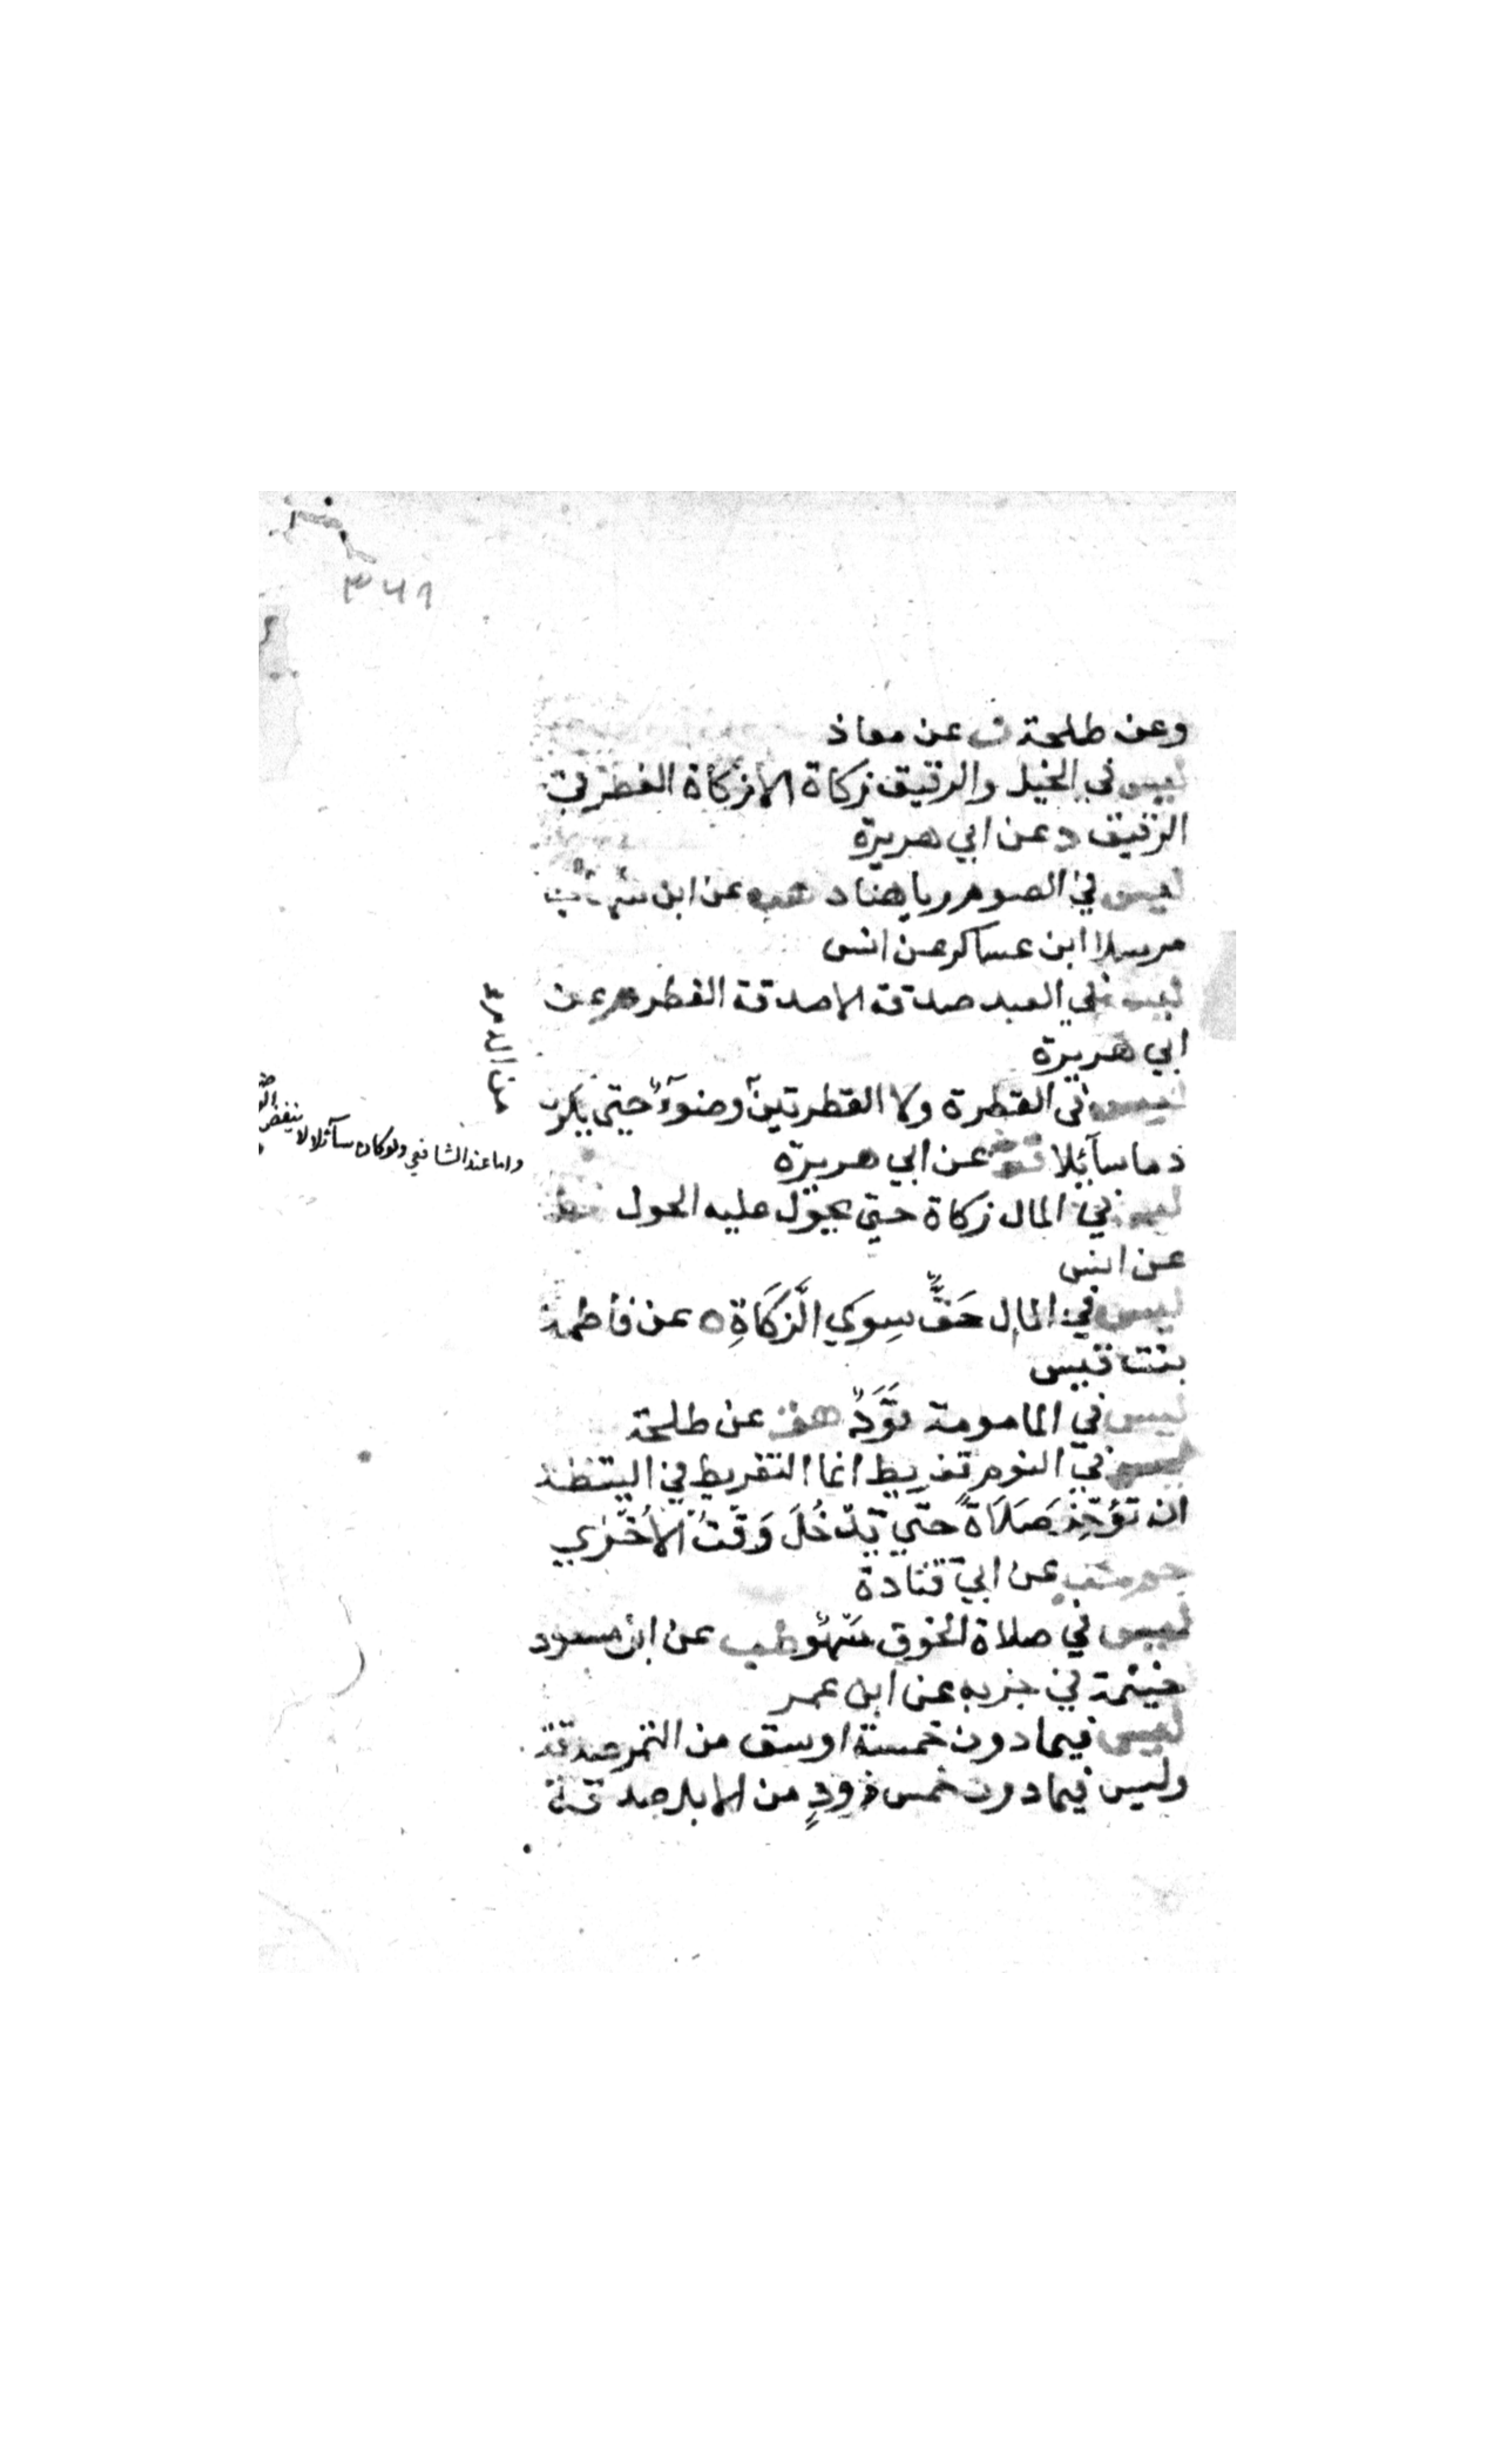 ٣٦١
وعن طلحة ت عن معاذ
ليس في الخيل والرقيق زكاة الا زكاة الفطر في
الرقيق د عن ابي هريرة
ليس في الصوم ريا هناد هب عن ابن شهاب
مرسلا ابن عساكر عن انس
ليس في العبد صدقة الا صدقة الفطر م عن
ابي هريرة
ليس في القطرة ولا القطرتين وضوءٌ حتى يكون
دما سآئلا قط عن ابي هريرة
واما عند الشافعي ولو كان سآئلا لا ينقض
ليس في المال زكاة حتى يحول عليه الحول قط
عن انس
ليس في المال حَقٌّ سِوَي الزَّكَاةِ ه عن فاطمة
بنت قيس
ليس في المامومة قَوَدٌ هق عن طلحة
ليس في النوم تفريط انما التفريط في اليقظة
ان تؤخِّر صَلَاةً حتى يَدْخُلَ وَقْتُ الأُخْرَي
حم حب عن ابي قتادة
ليس في صلاة الخوف سَهْوٌ طب عن ابن مسعود
خيثمة في جزءه عن ابن عمر
ليس فيما دون خمسة اوسق من التمر صدقة
وليس فيما دون خمس ذودٍ من الابل صدقة